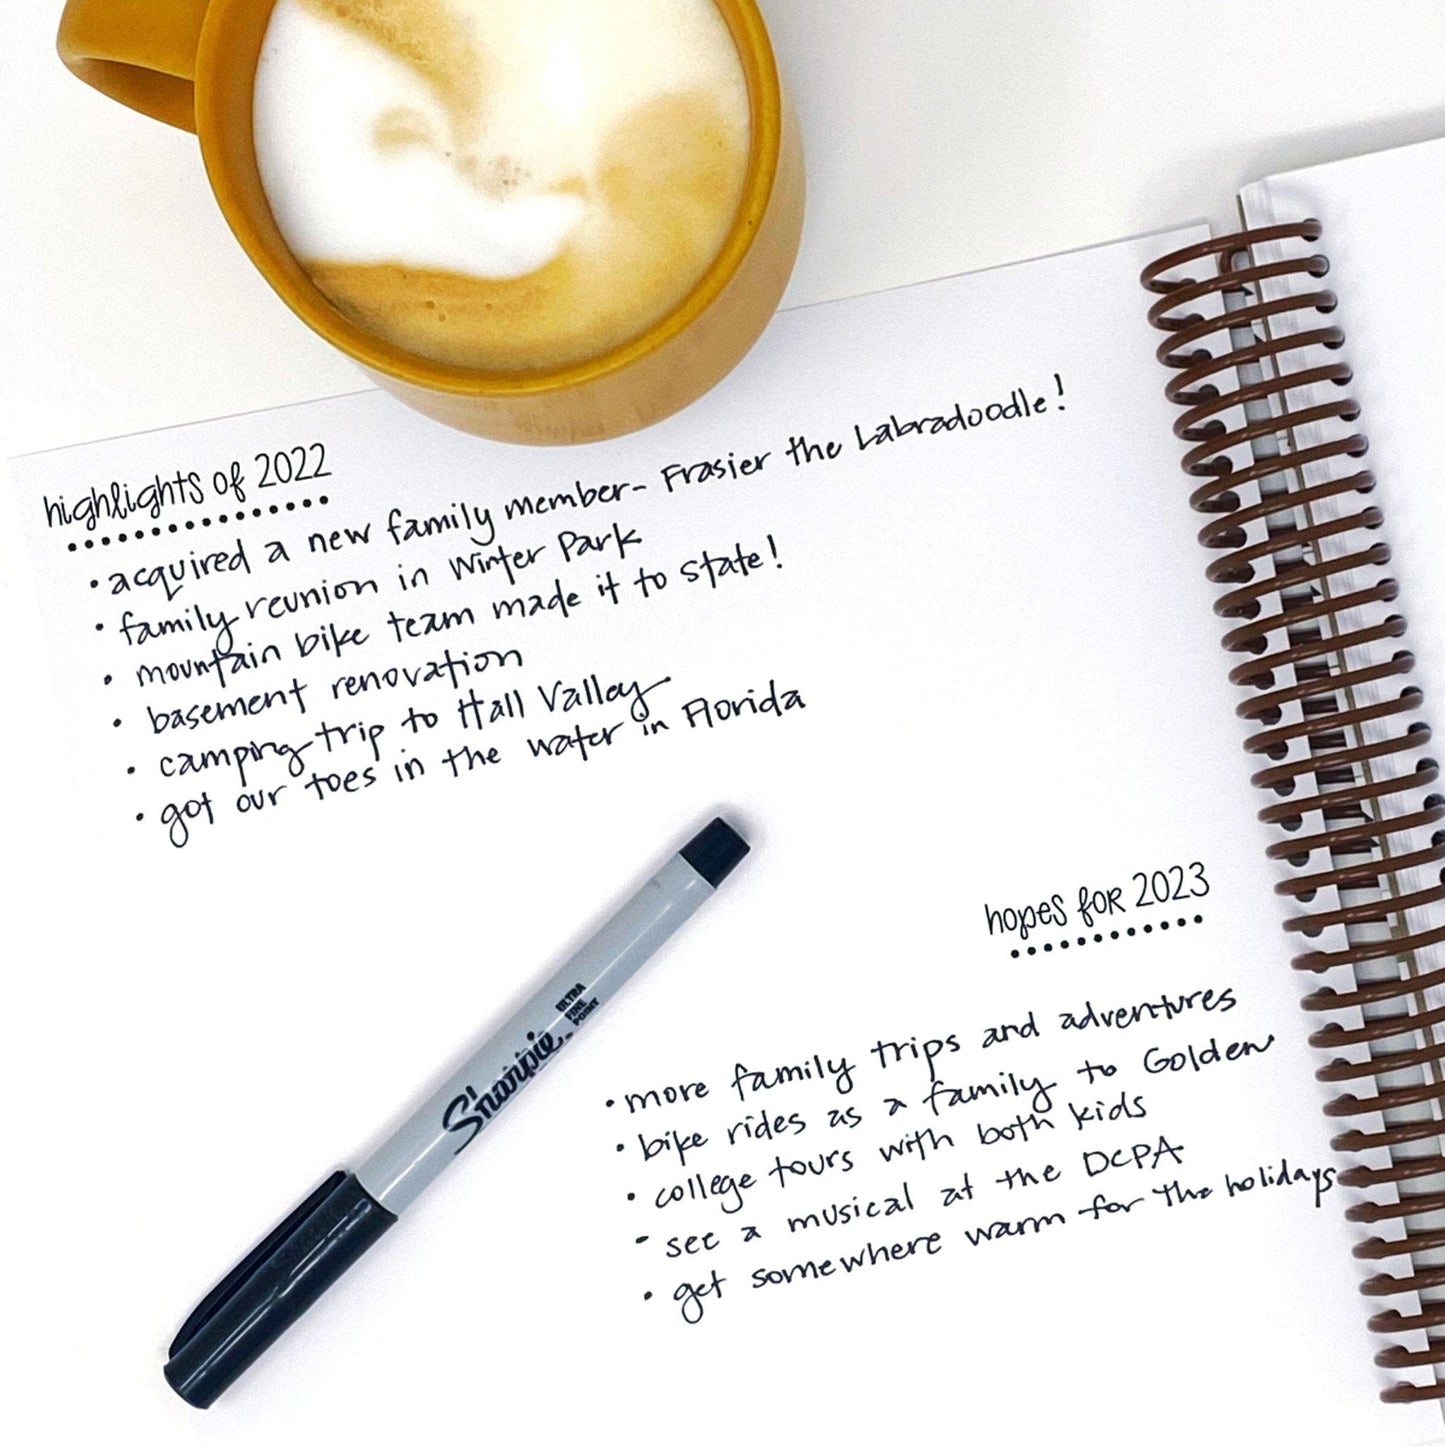 highlights of 2022
• acquired a new family member- Frasier the Labradoodle!
• family reunion in Winter Park
• mountain bike team made it to state!
• basement renovation
• camping trip to Hall Valley
• got our toes in the water in Florida
Sharpie
ULTRA
FINE
POINT
hopes for 2023
• more family trips and adventures
• bike rides as a family to Golden
• college tours with both kids
- see a musical at the DCPA
• get somewhere warm for the holidays